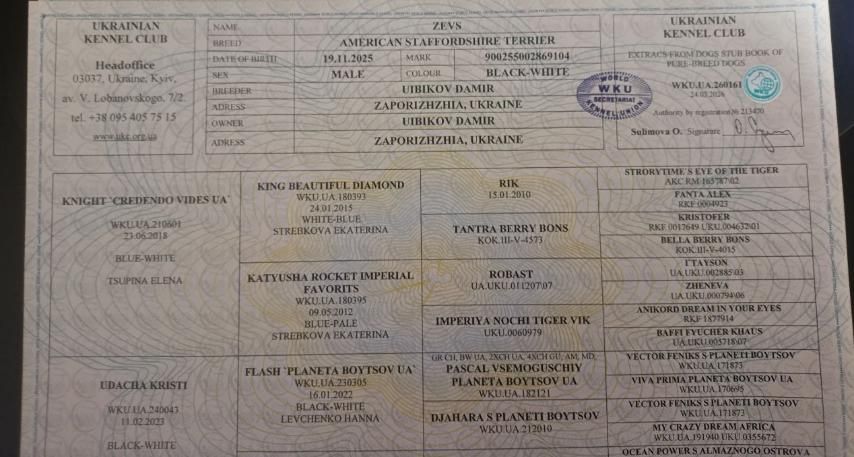 UKRAINIAN
KENNEL CLUB
Headoffice
03037, Ukraine, Kyiv,
av. V. Lobanovskogo, 7/2
tel. +38 095 405 75 15
www.ukc.org.ua
NAME ZEVS
BREED AMERICAN STAFFORDSHIRE TERRIER
DATE OF BIRTH 19.11.2025 MARK 900255002869104
SEX MALE COLOUR BLACK-WHITE
BREEDER UIBIKOV DAMIR
ADRESS ZAPORIZHZHIA, UKRAINE
OWNER UIBIKOV DAMIR
ADRESS ZAPORIZHZHIA, UKRAINE
UKRAINIAN
KENNEL CLUB
EXTRACS FROM DOGS STUB BOOK OF
PURE-BREED DOGS
WKU.UA.260161
24.03.2026
Authority by registration № 213470
Sulimova O. Signature
WORLD
WKU
SECRETARIAT
KENNEL UNION
KNIGHT `CREDENDO VIDES UA`
WKU.UA.210601
23.06.2018
BLUE-WHITE
TSUPINA ELENA
UDACHA KRISTI
WKU.UA.240043
11.02.2023
BLACK-WHITE
KING BEAUTIFUL DIAMOND
WKU.UA.180393
24.01.2015
WHITE-BLUE
STREBKOVA EKATERINA
KATYUSHA ROCKET IMPERIAL
FAVORITS
WKU.UA.180395
09.05.2012
BLUE-PALE
STREBKOVA EKATERINA
FLASH `PLANETA BOYTSOV UA`
WKU.UA.230305
16.01.2022
BLACK-WHITE
LEVCHENKO HANNA
RIK
15.01.2010
TANTRA BERRY BONS
KOK.III-V-4573
ROBAST
UA.UKU.011207/07
IMPERIYA NOCHI TIGER VIK
UKU.0060979
GR CH, BW UA, 2XCH UA, 4XCH GU, AM, MD,
PASCAL VSEMOGUSCHIY
PLANETA BOYTSOV UA
WKU.UA.182121
DJAHARA S PLANETI BOYTSOV
WKU.UA.212010
STRORYTIME`S EYE OF THE TIGER
AKC RM 165787\02
FANTA ALEX
RKF 0004923
KRISTOFER
RKF 0017649 UKU.004632\01
BELLA BERRY BONS
KOK.III-V-4015
TAYSON
UA.UKU.002885\03
ZHENEVA
UA.UKU.000794\06
ANIKORD DREAM IN YOUR EYES
RKF 1877914
BAFFI FYUCHER KHAUS
UA.UKU.005718\07
VECTOR FENIKS S PLANETI BOYTSOV
WKU.UA.171873
VIVA PRIMA PLANETA BOYTSOV UA
WKU.UA.170695
VECTOR FENIKS S PLANETI BOYTSOV
WKU.UA.171873
MY CRAZY DREAM AFRICA
WKU.UA.191940 UKU.0355672
OCEAN POWER S ALMAZNOGO OSTROVA